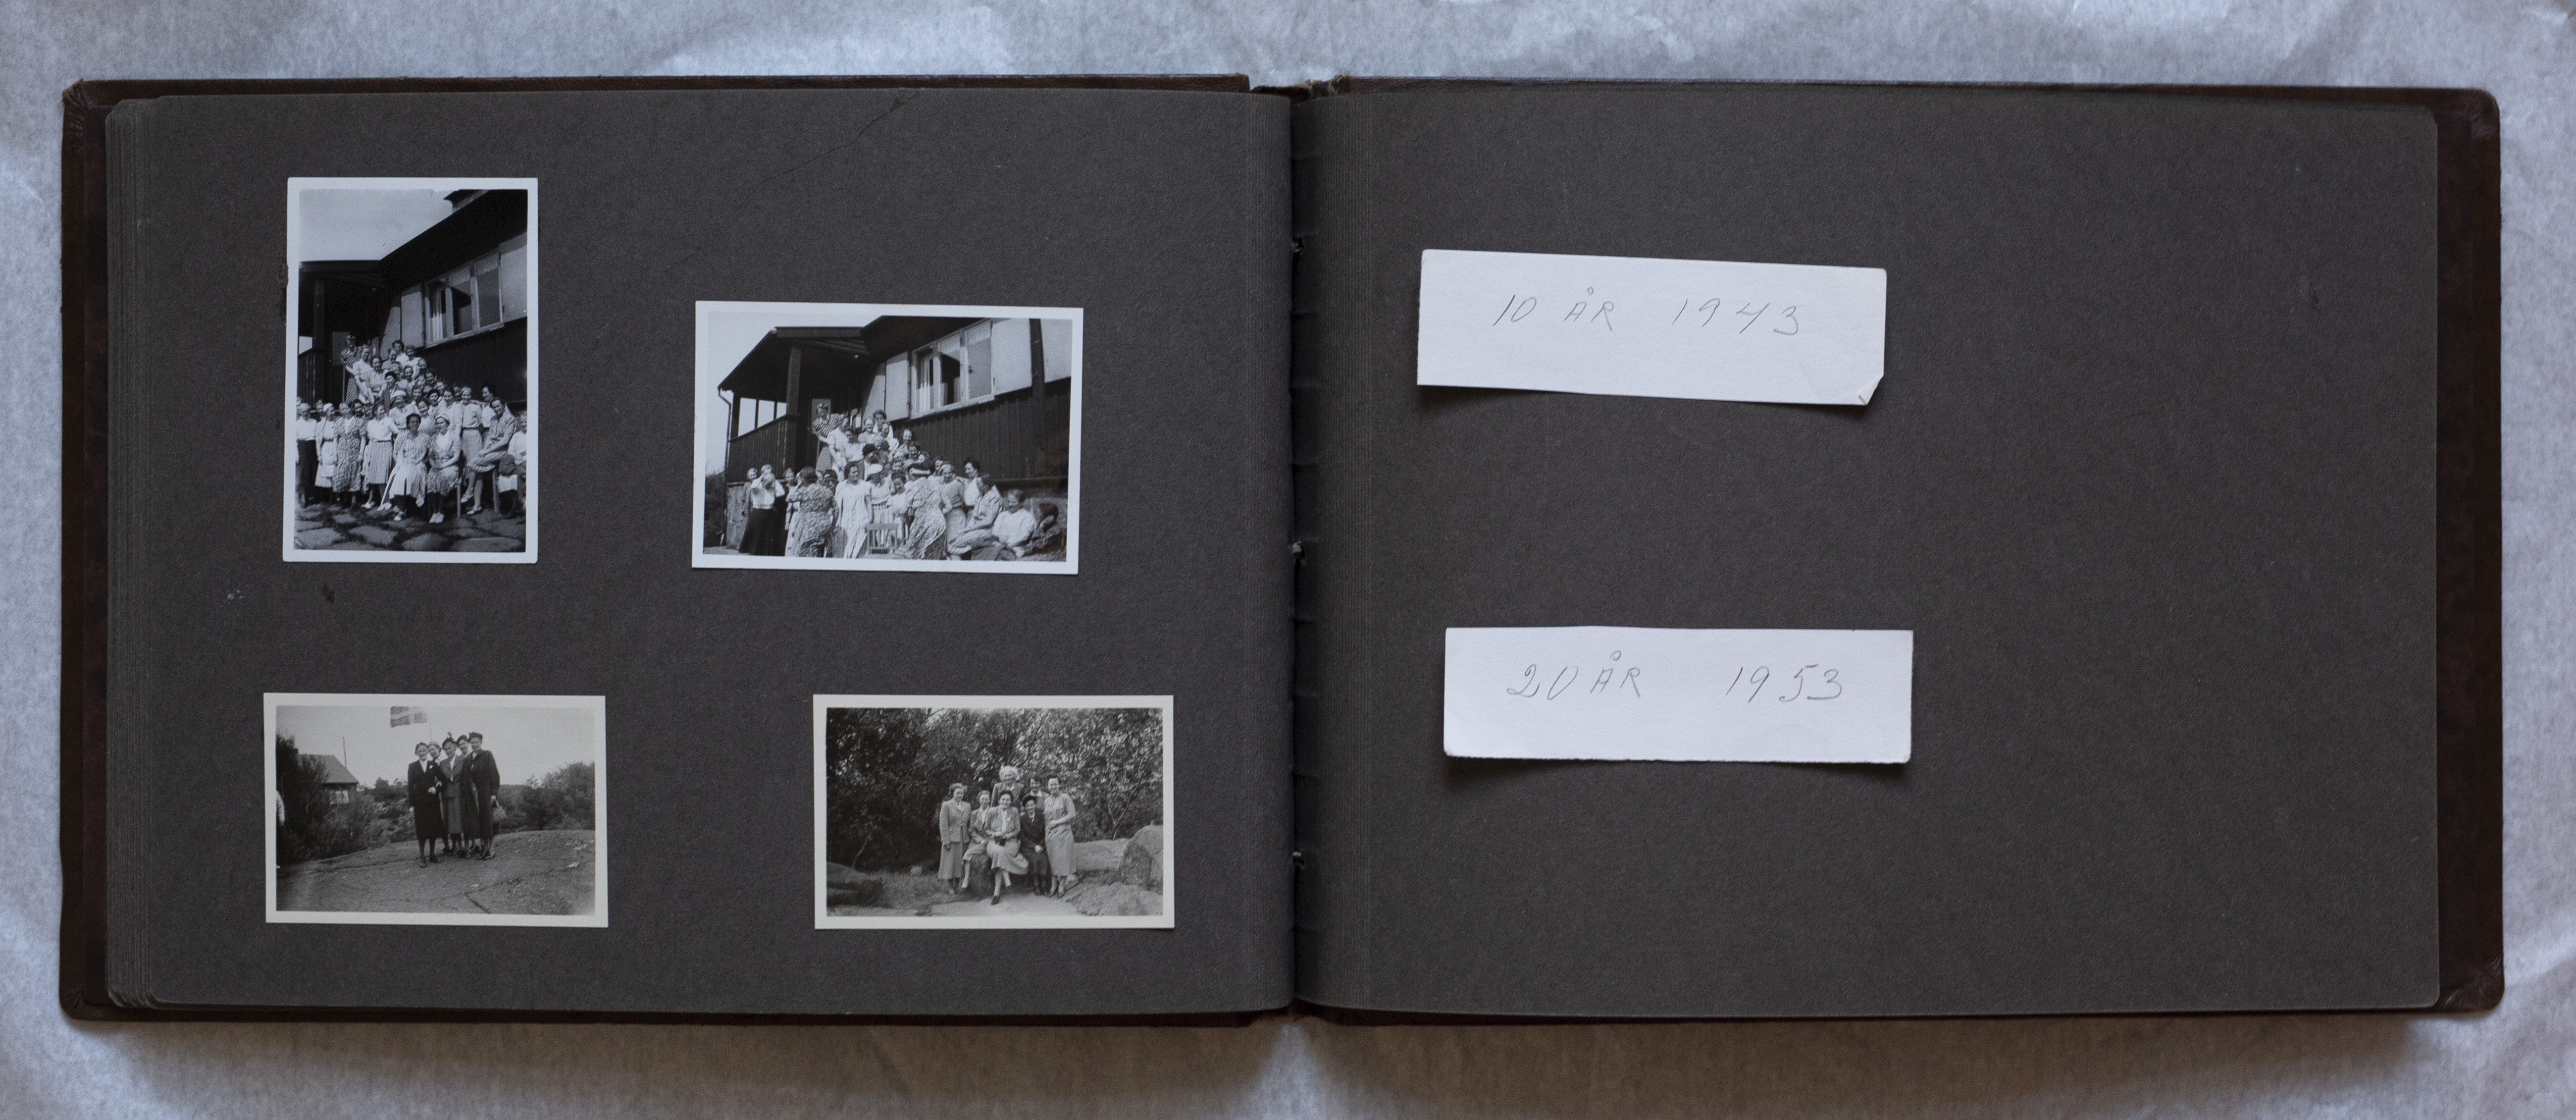 10 ÅR 1943
20 ÅR 1953